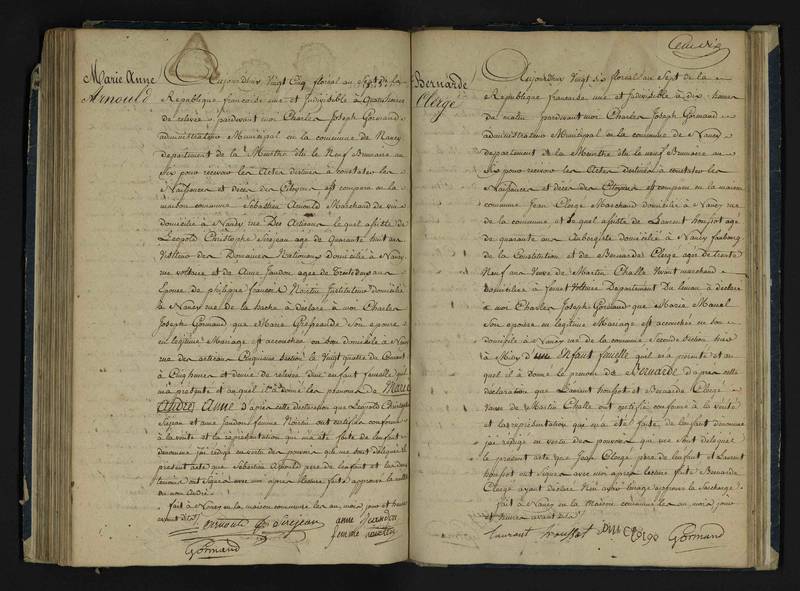 Marie Anne
Arnould
Aujourdhuy Vingt Cinq floreal au Sept de la
Republique francoise une et Indivisible à quatre heures
de relevée pardevant moi Charles Joseph Gormand
administrateur Municipal en la commune de Nancy
departement de la Meurthe élu le Neuf Brumaire an
Six pour recevoir les Actes destinés à constater les
Naissances et décès des Citoyens est comparu en la
maison commune Sebastien Arnould Marchand de vin
domicilié à Nancy rue Des Artisans lequel assisté de
Leopold Christophe Sirejean agé de quarante huit ans
des Domaines Nationaux domicilié à Nancy
rue voltaire et de Anne Jandon agée de Trente deux ans
Epouse de philippe francois Noirtin Instituteur domicilié
à Nancy rue de la hache à déclaré à moi Charles
Joseph Gormand que Marie Son epouse
en legitime Mariage est accouchée en son domicile à Nancy
rue des artisans Cinquieme section le Vingt quatre du Courant
à Cinq heures et demie de relevée d'un enfant femelle quil
m'a présenté et auquel il a donné les prenoms de Marie
André Anne d'après cette déclaration que Léopold Christophe
Sirejean et anne Jandon femme Noirtin ont certifiée conforme
à la verité et la représentation qui m'a été faite de l'enfant
denommé j'ai rédigé en vertu des pouvoirs qui me sont délégués le
présent acte que Sébastien Arnould pere de l'enfant et les
temoins ont Signé avec moi apres lecture faite approuvé la
au mot André
fait à Nancy en la maison commune les an, mois jour et heures
avant dits
Arnould Sirejean anne Jeandon
femme noirtin
Gormand
Cent Six
Bernarde
Clergé
Aujourdhuy Vingt six floreal au Sept de la
Republique francoise une et indivisible à dix heures
du matin pardevant moi Charles Joseph Gormand
administrateur Municipal en la commune de Nancy
departement de la Meurthe élu le neuf Brumaire an
Six pour recevoir les Actes destinés à constater les
Naissances et décès des Citoyens est comparu en la maison
commune Jean Clergé Marchand domicilié à Nancy rue
de la commune et lequel assisté de Laurent houssot agé
de quarante ans Aubergiste domicilié à Nancy faubourg
de la Constitution et de Bernarde Clergé agée de trente
Neuf ans Veuve de Martin Challe Vivant marchand
domiciliée à Departement du à déclaré
à moi Charles Joseph Gormand que Marie
Son epouse en legitime Mariage est accouchée en son
domicile à Nancy rue de la commune Seconde section hier
à Midy d'un Enfant femelle quil m'a présenté et au
quel il a donné le prenom de Bernarde d'après cette
déclaration que Laurent houssot et Bernarde Clergé
Veuve de Martin Challe ont certifié conforme à la verité
et la représentation qui m'a été faite de l'enfant denommé
j'ai rédigé en vertu des pouvoirs qui me sont délégués
le présent acte que Jean Clergé pere de l'enfant et Laurent
houssot ont signé avec moi après lecture faite Bernarde
Clergé ayant déclaré N'en avoir l'usage approuvé la Surcharge
fait à Nancy en la Maison commune les an, mois jour
et heures avant dits
Laurant houssot Clerge Gormand